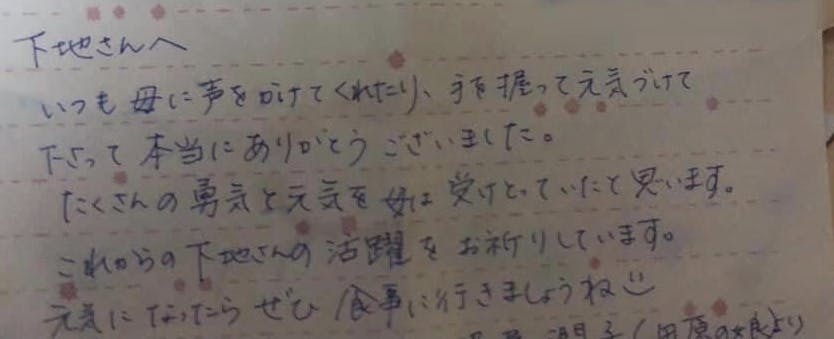 下地さんへ
いつも母に声をかけてくれたり、手を握って元気づけて
下さって本当にありがとうございました。
たくさんの勇気と元気を母は受けとっていたと思います。
これからの下地さんの活躍をお祈りしています。
元気になったらぜひ食事に行きましょうね☺
子(田原の娘より